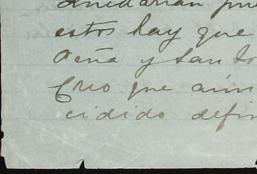 quedarían
estos hay que
Peña y Santo
Creo que aún
cidido defin